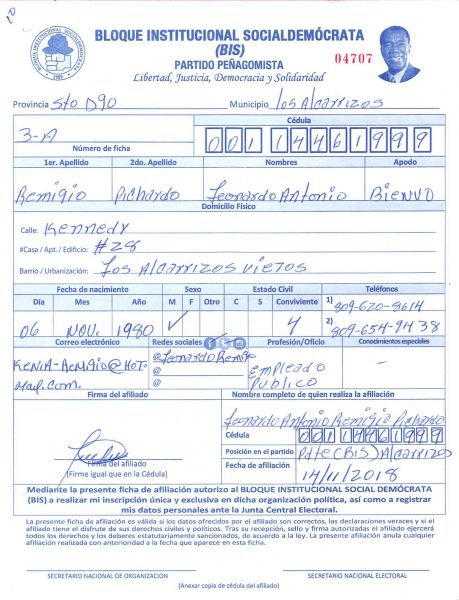 BLOQUE INSTITUCIONAL SOCIALDEMÓCRATA
(BIS)
PARTIDO PEÑAGOMISTA
04707
Libertad, Justicia, Democracia y Solidaridad
Provincia Sto Dgo Municipio Los Alcarrizos
Cédula
3-A
001 1446199 9
Número de ficha
1er. Apellido 2do. Apellido Nombres Apodo
Remigio Pichardo Leonardo Antonio Bienvo
Domicilio Físico
Calle: Kennedy
#Casa / Apt. / Edificio: #28
Barrio / Urbanización: Los Alcarrizos viejos
Fecha de nacimiento Sexo Estado Civil Teléfonos
Día Mes Año M F Otro C S Conviviente 1) 809-620-8614
06 Nov. 1980 ✓ 2) 809-654-9438
Correo electrónico Redes sociales Profesión/Oficio Conocimientos especiales
KENIA-REMIGIO@HOT @Leonardo Remigio Empleado -
Mail.com. @ Publico
@
Firma del afiliado Nombre completo de quien realiza la afiliación
Leonardo Antonio Remigio Pichardo
Cédula 001 1446199 9
Posición en el partido Pdte (BIS) Alcarrizos
Firma del afiliado
(Firme igual que en la Cédula)
Fecha de afiliación 14/11/2018
Mediante la presente ficha de afiliación autorizo al BLOQUE INSTITUCIONAL SOCIAL DEMÓCRATA
(BIS) a realizar mi inscripción única y exclusiva en dicha organización política, así como a registrar
mis datos personales ante la Junta Central Electoral.
La presente ficha de afiliación es válida si los datos ofrecidos por el afiliado son correctos, las declaraciones veraces y si el afiliado
tiene el disfrute de sus derechos civiles y políticos. Tras su recepción, sello y firma autorizadas el afiliado ejercerá
todos los derechos y los deberes estatutariamente sancionados, de acuerdo a la ley. La presente afiliación anula cualquier
afiliación realizada con anterioridad a la fecha que aparece en esta ficha.
SECRETARIO NACIONAL DE ORGANIZACIÓN SECRETARIO NACIONAL ELECTORAL
(Anexar copia de cédula del afiliado)